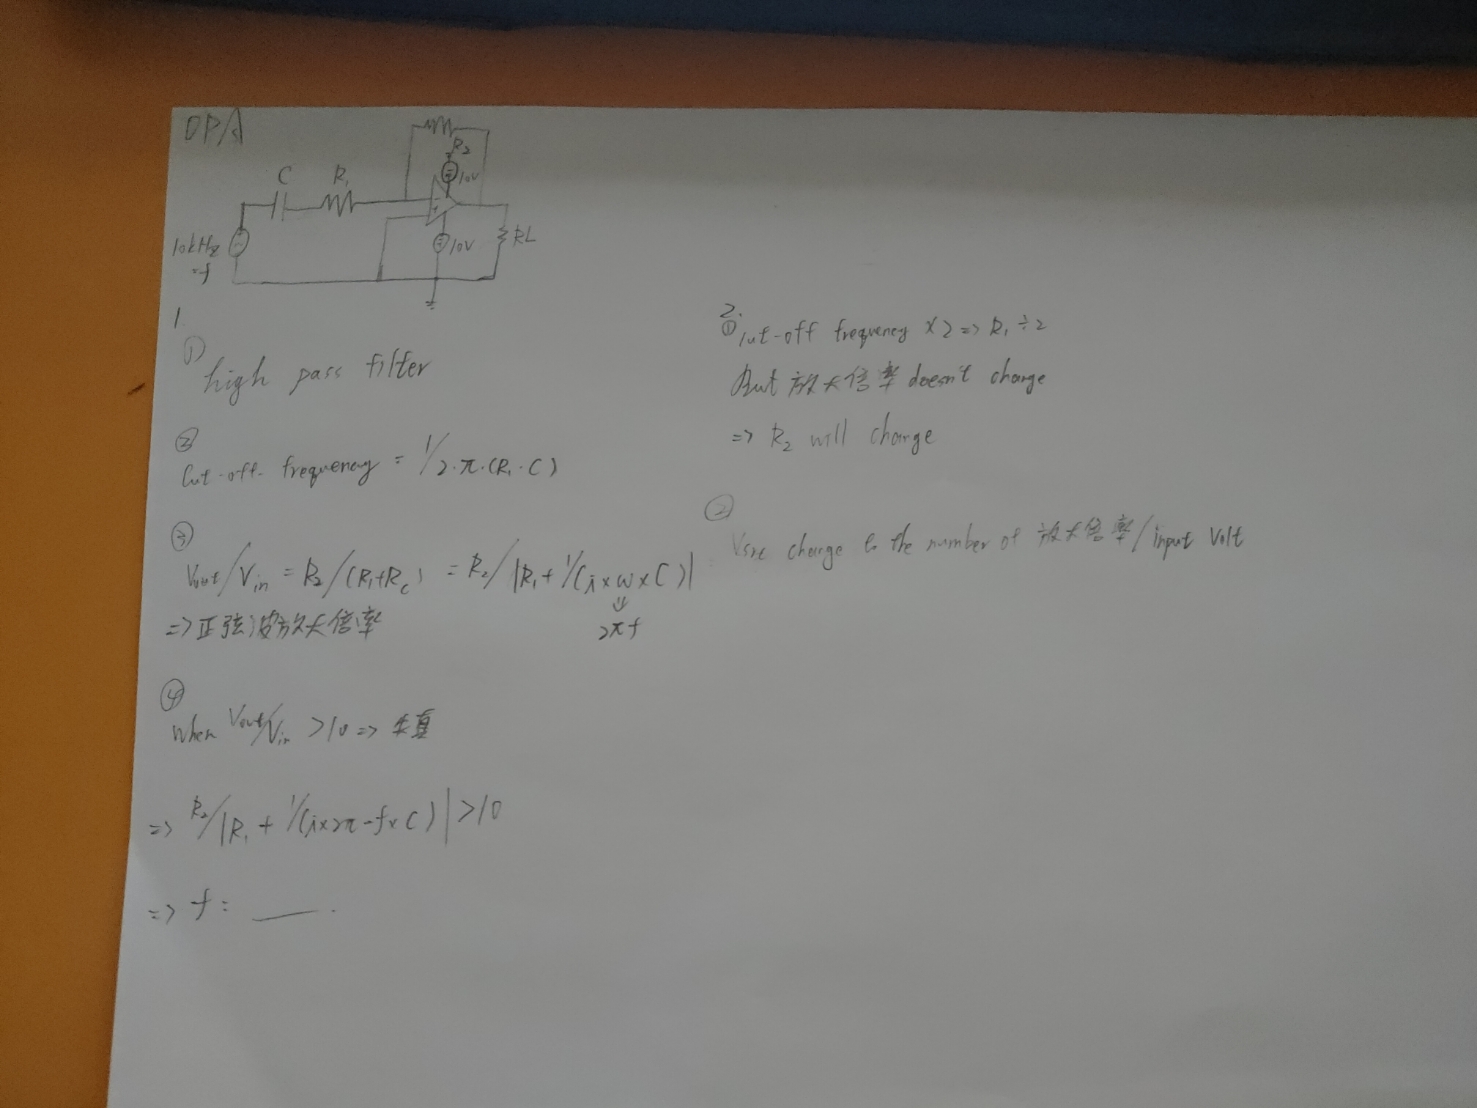 OPA
R2
10V
C R1
10kHz
=f
10V
RL
1.
① high pass filter
②
Cut-off frequency = 1/2·π·(R1·C)
③
Vout/Vin = R2/(R1+Rc) = R2/|R1+1/(i×w×C)|
⇓
2πf
=> 正弦波放大倍率
④
When Vout/Vin >10 => 失真
=> R2/|R1 + 1/(i×2π-f×C)| >10
=> f = ___.
2.
① Cut-off frequency ×2 => R1 ÷2
But 放大倍率 doesn't change
=> R2 will change
②
change to the number of 放大倍率/input Volt